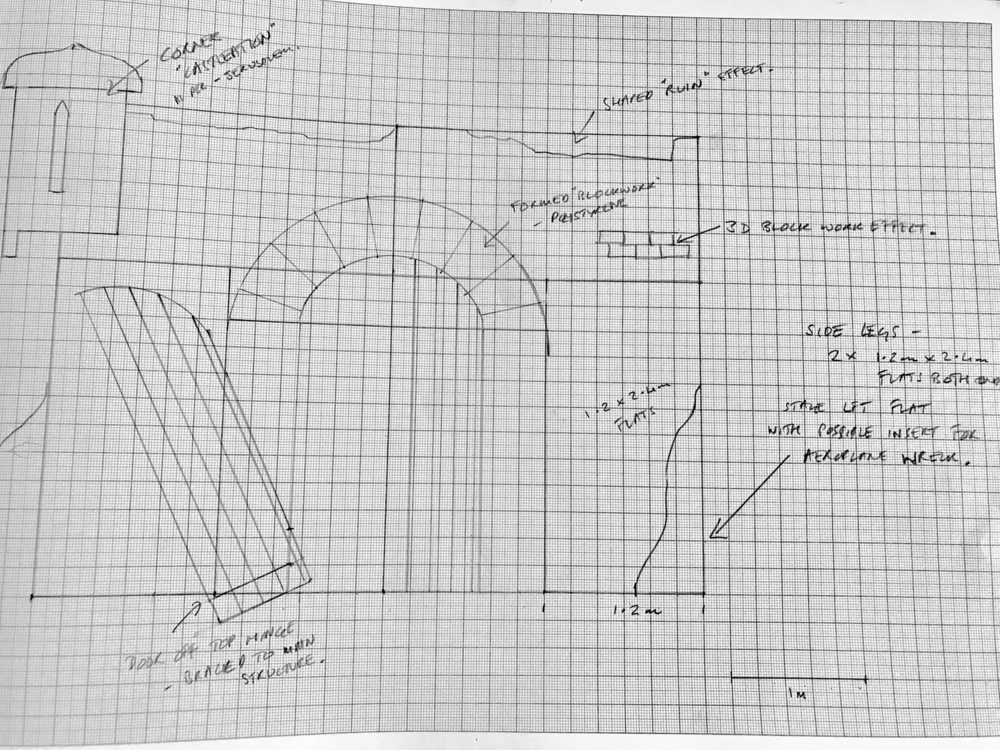 CORNER
"CASTLEATION"
AS PER - JERUSALEM.
SHAPED "RUIN" EFFECT.
FORMED "BLOCKWORK"
- POLYSTYRENE
3D BLOCK WORK EFFECT.
SIDE LEGS -
2 x 1.2m x 2.4m
FLATS BOTH END
1.2 x 2.4m
FLATS
STAGE LFT FLAT
WITH POSSIBLE INSERT FOR
AEROPLANE WRECK.
1.2m
DOOR OFF TOP HINGE
- BRACED TO MAIN
STRUCTURE.
1M